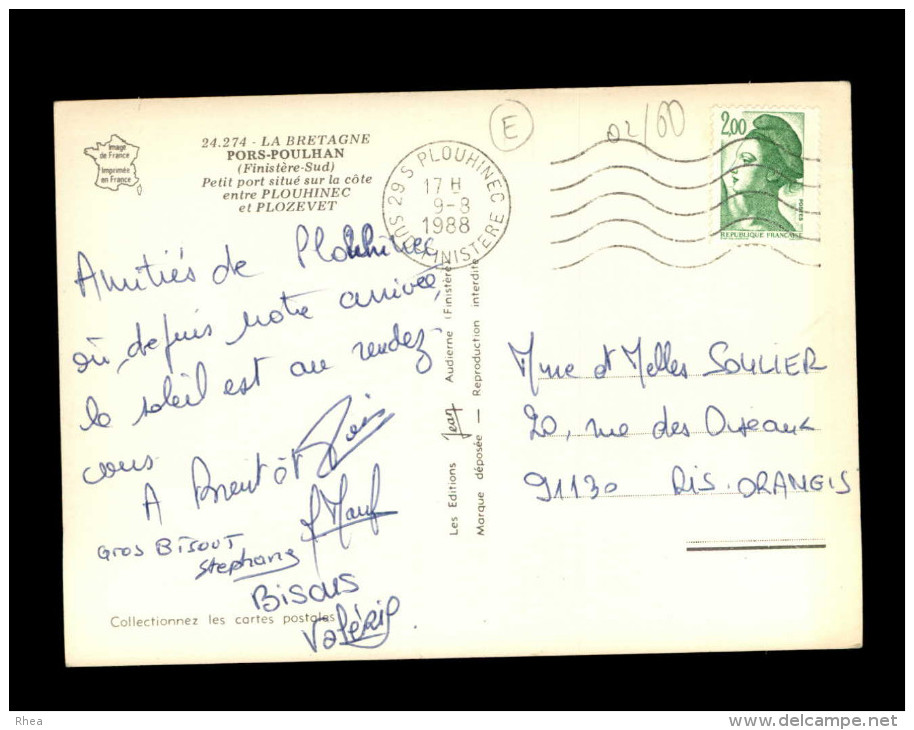 Image
de France
Imprimée
en France
24.274 - LA BRETAGNE
PORS-POULHAN
(Finistère-Sud)
Petit port situé sur la côte
entre PLOUHINEC
et PLOZEVET
E
02/60
29 S PLOUHINEC
17 H
9-8
1988
SUD FINISTERE
2,00
POSTES
REPUBLIQUE FRANÇAISE
Amitiés de Plouhinec
où, depuis notre arrivée,
le soleil est au rendez-
vous.
A Bientôt
Gros BISOUT
Stephany
Bisous
Valérie
Collectionnez les cartes postales
Les Editions Jean Audierne (Finistère)
Marque déposée — Reproduction interdite
Mme et Melles SOULIER
20, rue des Oiseaux
91130 RIS.ORANGIS
Rhea
www.delcampe.net